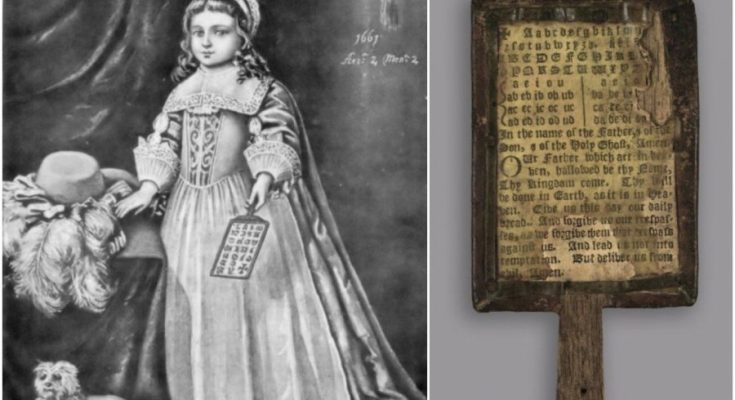 1661
A a b c d e f g h i k l m n
r s t u v w x y z
B C D E F G H I K
P Q R S T U V W X Y
a e i o u a e i
ab eb ib ob ub ba be bi
ac ec ic oc uc ca ce ci
ad ed id od ud da de di
In the name of the Father, & of the
Son, & of the Holy Ghost, Amen.
OUr Father which art in hea-
ven, hallowed be thy Name,
Thy Kingdom come. Thy Will
be done in Earth, as it is in Hea-
ven. Give us this day our daily
bread. And forgive us our trespas-
ses, as we forgive them that trespass
against us. And lead us not into
temptation. But deliver us from
evil, Amen.